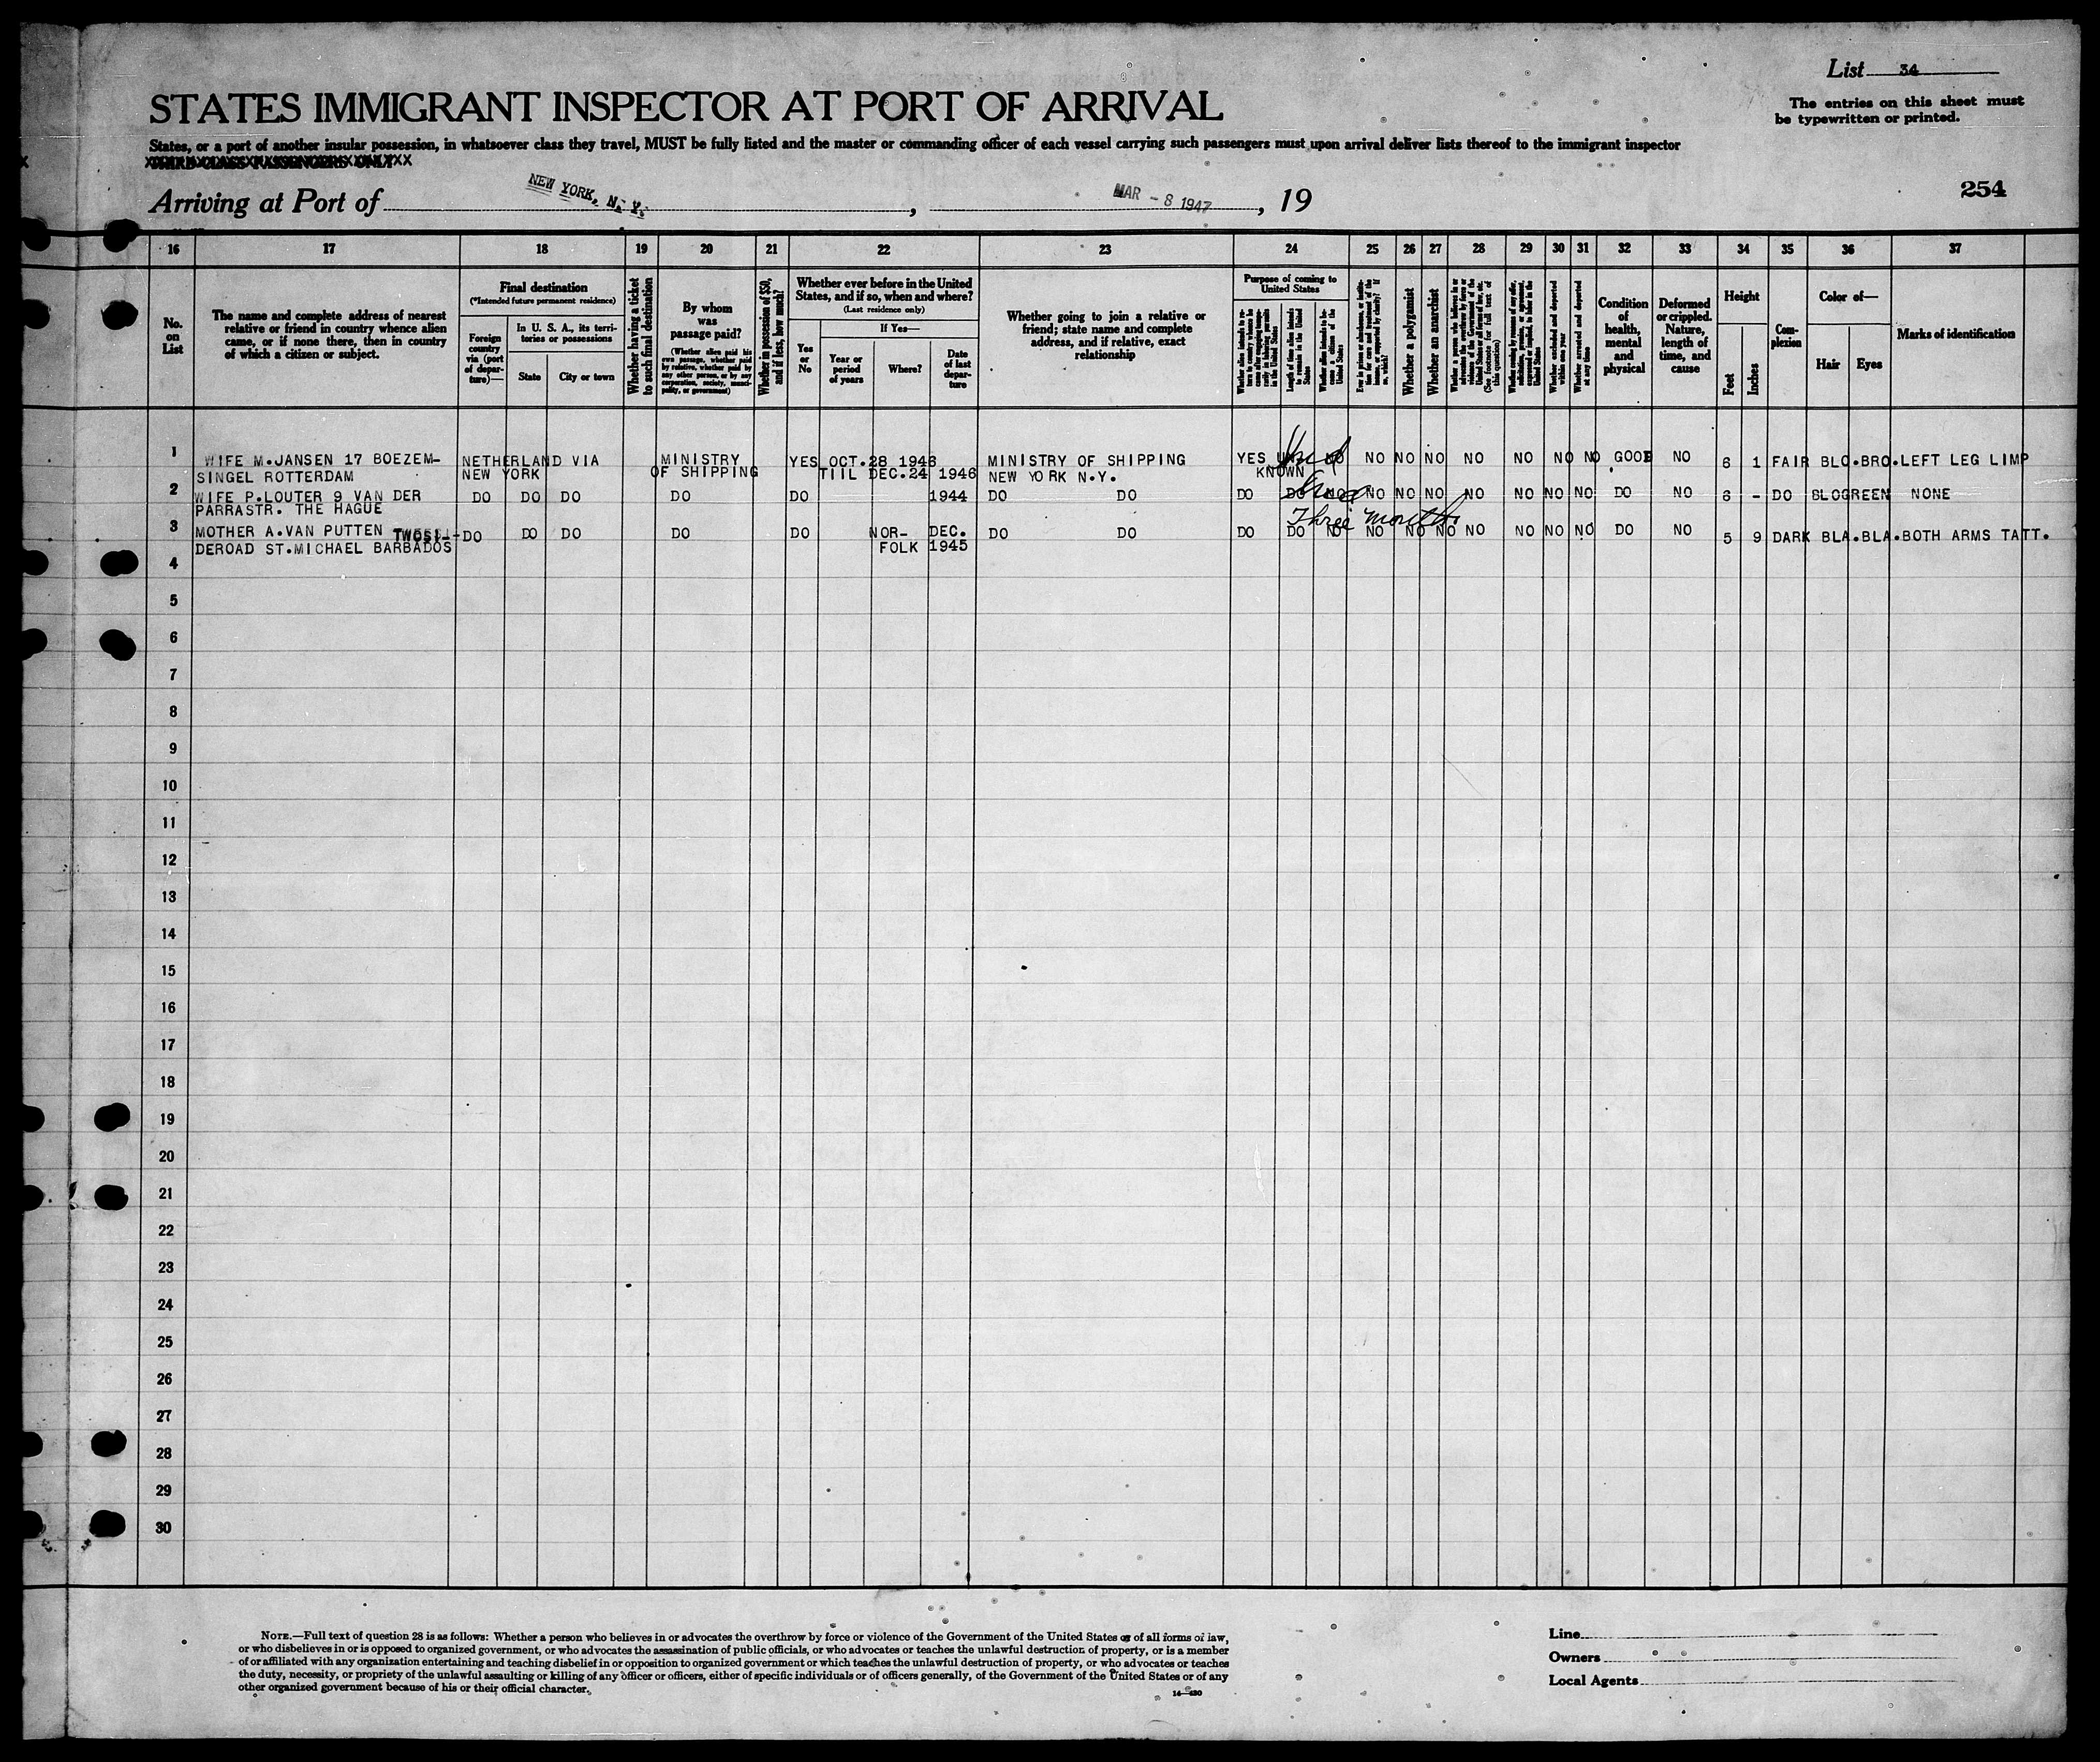 List 34
STATES IMMIGRANT INSPECTOR AT PORT OF ARRIVAL
The entries on this sheet must
be typewritten or printed.
States, or a port of another insular possession, in whatsoever class they travel, MUST be fully listed and the master or commanding officer of each vessel carrying such passengers must upon arrival deliver lists thereof to the immigrant inspector
Arriving at Port of NEW YORK, N. Y. , MAR - 8 1947 , 19
254
16 17 18 19 20 21 22 23 24 25 26 27 28 29 30 31 32 33 34 35 36 37
No.
on
List
The name and complete address of nearest
relative or friend in country whence alien
came, or if none there, then in country
of which a citizen or subject.
Final destination
(*Intended future permanent residence)
Foreign
country
via (port
of depar-
ture)—
In U. S. A., its terri-
tories or possessions
State
City or town
Whether having a ticket
to such final destination
By whom
was
passage paid?
(Whether alien paid his
own passage, whether paid
by relative, whether paid by
any other person, or by any
corporation, society, munici-
pality, or government)
Whether in possession of $50,
and if less, how much?
Whether ever before in the United
States, and if so, when and where?
(Last residence only)
Yes
or
No
If Yes—
Year or
period
of years
Where?
Date
of last
depar-
ture
Whether going to join a relative or
friend; state name and complete
address, and if relative, exact
relationship
Purpose of coming to
United States
Length of time alien intends
to remain in the United
States
Whether alien intends to be-
come a citizen of the
United States
Whether a polygamist
Whether an anarchist
Whether excluded and deported
within one year
Whether arrested and deported
at any time
Condition
of
health,
mental
and
physical
Deformed
or crippled.
Nature,
length of
time, and
cause
Height
Feet
Inches
Com-
plexion
Color of—
Hair
Eyes
Marks of identification
1 WIFE M.JANSEN 17 BOEZEM- NETHERLAND VIA MINISTRY YES OCT.28 1946 MINISTRY OF SHIPPING YES UN- NO NO NO NO NO NO NO NO GOOD NO 6 1 FAIR BLO.BRO.LEFT LEG LIMP
SINGEL ROTTERDAM NEW YORK OF SHIPPING TIIL DEC.24 1946 NEW YORK N.Y. KNOWN
2 WIFE P.LOUTER 9 VAN DER DO DO DO DO DO 1944 DO DO DO DO NO NO NO NO NO NO NO NO DO NO 6 - DO BLOGREEN NONE
PARRASTR. THE HAGUE
Three months
3 MOTHER A.VAN PUTTEN DO DO DO DO DO NOR- DEC. DO DO DO DO NO NO NO NO NO NO NO NO DO NO 5 9 DARK BLA.BLA.BOTH ARMS TATT.
DEROAD ST.MICHAEL BARBADOS FOLK 1945
4
5
6
7
8
9
10
11
12
13
14
15
16
17
18
19
20
21
22
23
24
25
26
27
28
29
30
NOTE.—Full text of question 28 is as follows: Whether a person who believes in or advocates the overthrow by force or violence of the Government of the United States or of all forms of law,
or who disbelieves in or is opposed to organized government, or who advocates the assassination of public officials, or who advocates or teaches the unlawful destruction of property, or is a member
of or affiliated with any organization entertaining and teaching disbelief in or opposition to organized government or which teaches the unlawful destruction of property, or who advocates or teaches
the duty, necessity, or propriety of the unlawful assaulting or killing of any officer or officers, either of specific individuals or of officers generally, of the Government of the United States or of any
other organized government because of his or their official character.
Line
Owners
Local Agents